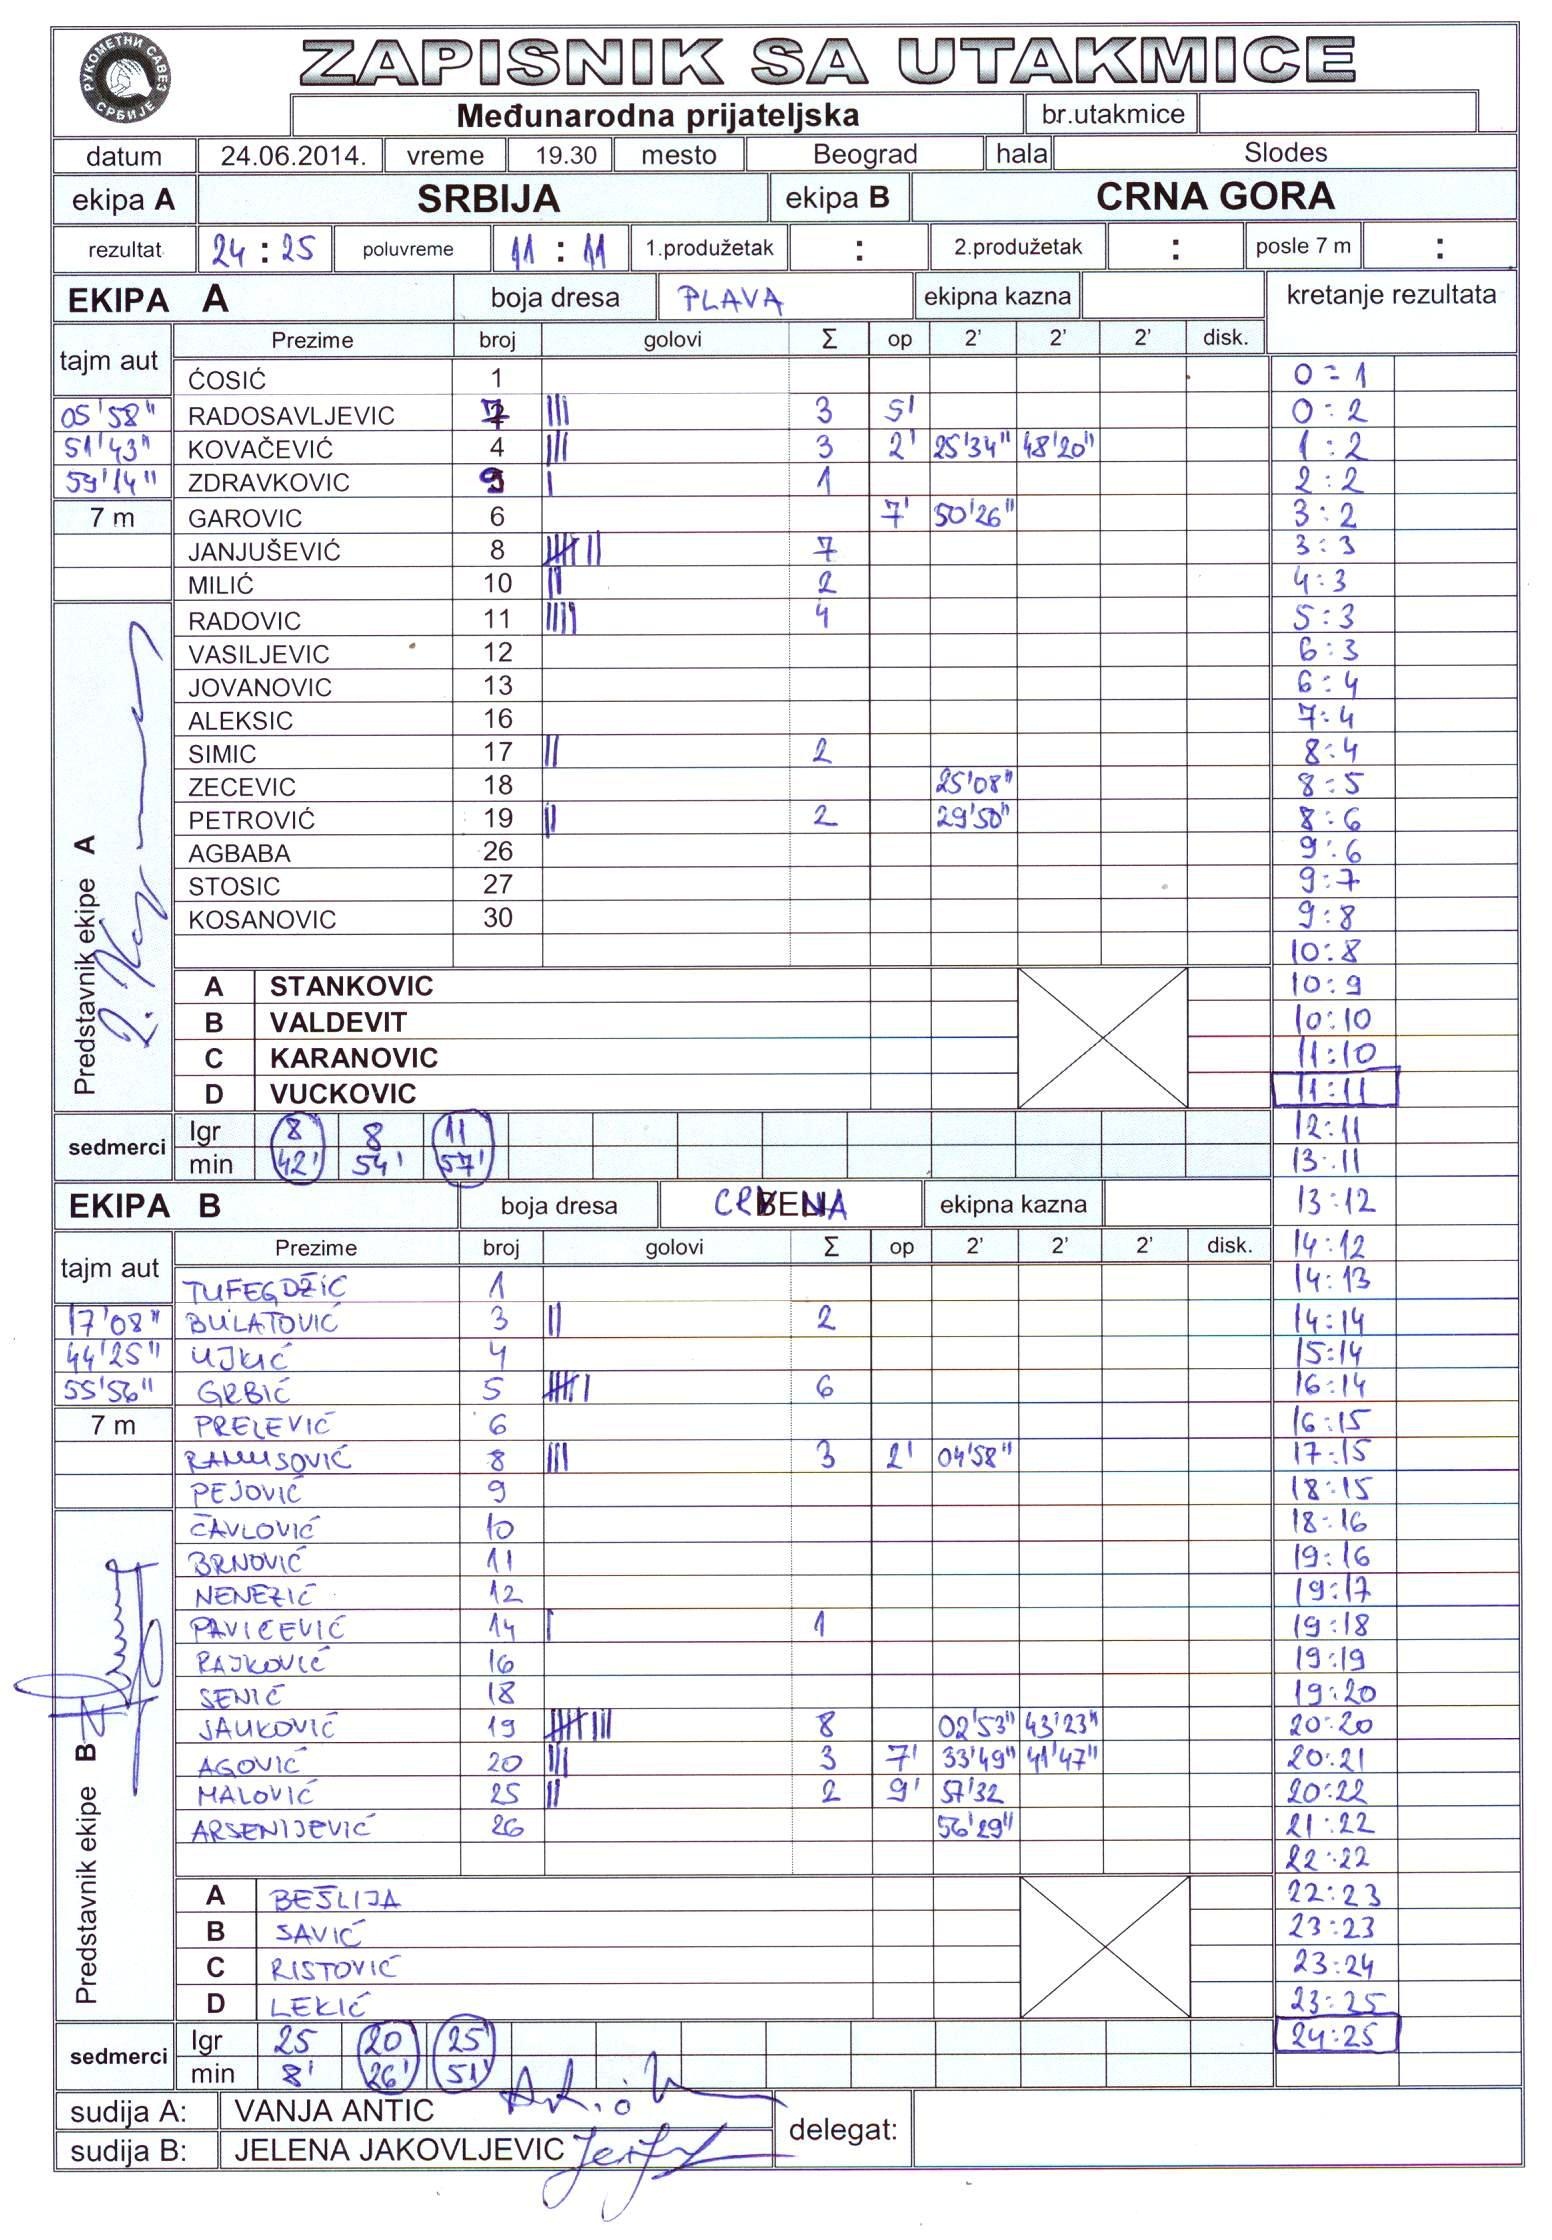 РУКОМЕТНИ САВЕЗ СРБИЈЕ
ZAPISNIK SA UTAKMICE
Međunarodna prijateljska br.utakmice
datum 24.06.2014. vreme 19.30 mesto Beograd hala Slodes
ekipa A SRBIJA ekipa B CRNA GORA
rezultat 24 : 25 poluvreme 11 : 11 1.produžetak : 2.produžetak : posle 7 m :
EKIPA A boja dresa PLAVA ekipna kazna kretanje rezultata
tajm aut Prezime broj golovi Σ op 2' 2' 2' disk.
ĆOSIĆ 1 0 = 1
05'58" RADOSAVLJEVIC 7 ||| 3 5' 0 : 2
51'43" KOVAČEVIĆ 4 ||| 3 2' 25'34" 48'20" 1 : 2
59'14" ZDRAVKOVIC 9 | 1 2 : 2
7 m GAROVIC 6 7' 50'26" 3 : 2
JANJUŠEVIĆ 8 |||| || 7 3 : 3
MILIĆ 10 || 2 4 : 3
RADOVIC 11 |||| 4 5 : 3
VASILJEVIC 12 6 : 3
JOVANOVIC 13 6 : 4
ALEKSIC 16 7 : 4
SIMIC 17 || 2 8 : 4
ZECEVIC 18 25'08" 8 : 5
PETROVIĆ 19 || 2 29'50" 8 : 6
AGBABA 26 9 : 6
STOSIC 27 9 : 7
KOSANOVIC 30 9 : 8
10 : 8
Predstavnik ekipe A
A STANKOVIC 10 : 9
B VALDEVIT 10:10
C KARANOVIC 11:10
D VUCKOVIC 11:11
sedmerci Igr 8 8 11 12:11
min 42' 54' 57' 13:11
EKIPA B boja dresa CRVENA ekipna kazna 13:12
tajm aut Prezime broj golovi Σ op 2' 2' 2' disk. 14:12
TUFEGDŽIĆ 1 14:13
17'08" BULATOVIĆ 3 || 2 14:14
44'25" UJKIĆ 4 15:14
55'56" GRBIĆ 5 |||| | 6 16:14
7 m PRELEVIĆ 6 16:15
RAMUSOVIĆ 8 ||| 3 2' 04'58" 17:15
PEJOVIĆ 9 18:15
ČAVLOVIĆ 10 18:16
BRNOVIĆ 11 19:16
NENEZIĆ 12 19:17
PAVICEVIĆ 14 | 1 19:18
RAJKOVIĆ 16 19:19
SENIĆ 18 19:20
JAUKOVIĆ 19 |||| ||| 8 02'53" 43'23" 20:20
AGOVIĆ 20 ||| 3 7' 33'49" 41'47" 20:21
MALOVIĆ 25 || 2 9' 57'32 20:22
ARSENIJEVIĆ 26 56'29" 21:22
22:22
Predstavnik ekipe B
A BEŠLIJA 22:23
B SAVIĆ 23:23
C RISTOVIĆ 23:24
D LEKIĆ 23:25
sedmerci Igr 25 20 25 24:25
min 8' 26' 51'
sudija A: VANJA ANTIC delegat:
sudija B: JELENA JAKOVLJEVIC